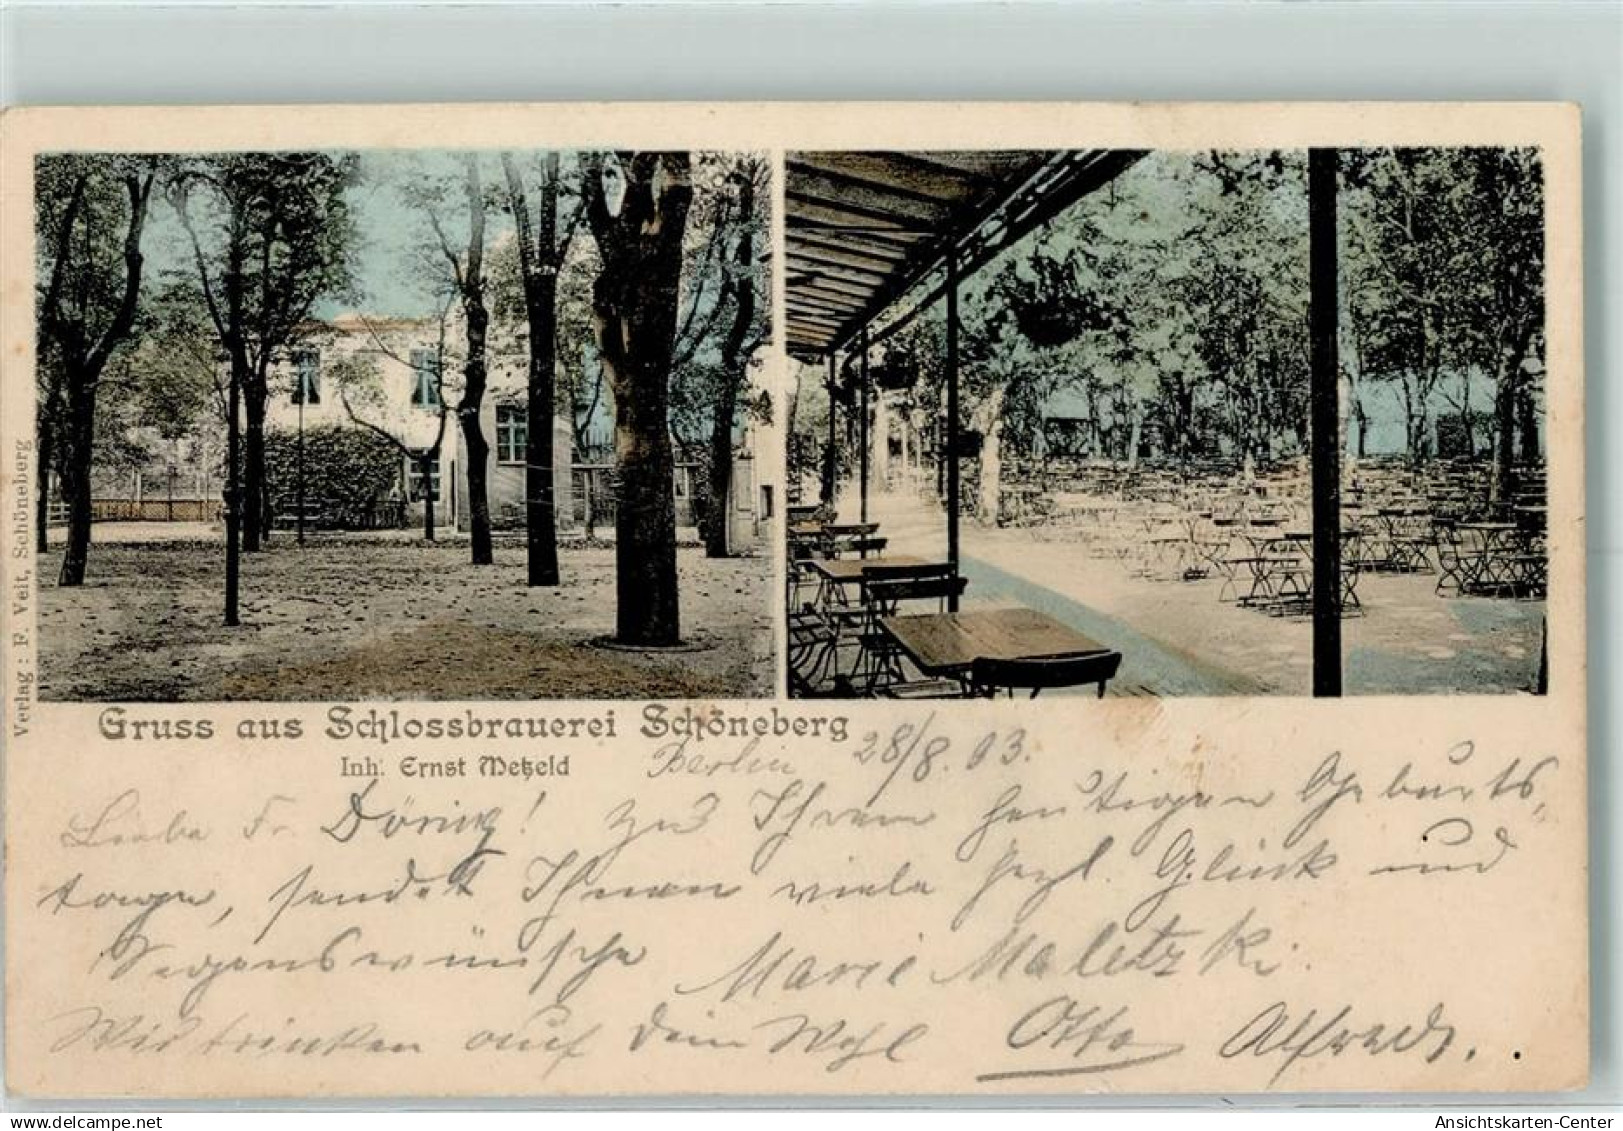 Verlag: F. Veit, Schöneberg
Gruss aus Schlossbrauerei Schöneberg
Inh. Ernst Metzeld
Berlin 28/8.03.
Liebe Fr. Döring! Zu Ihrem heutigen Geburts-
tage, sendet Ihnen viele herzl. Glück und
Segenswünsche Marie Maletzki.
Wir trinken auf Dein Wohl Otto Alfred.
Ansichtskarten-Center